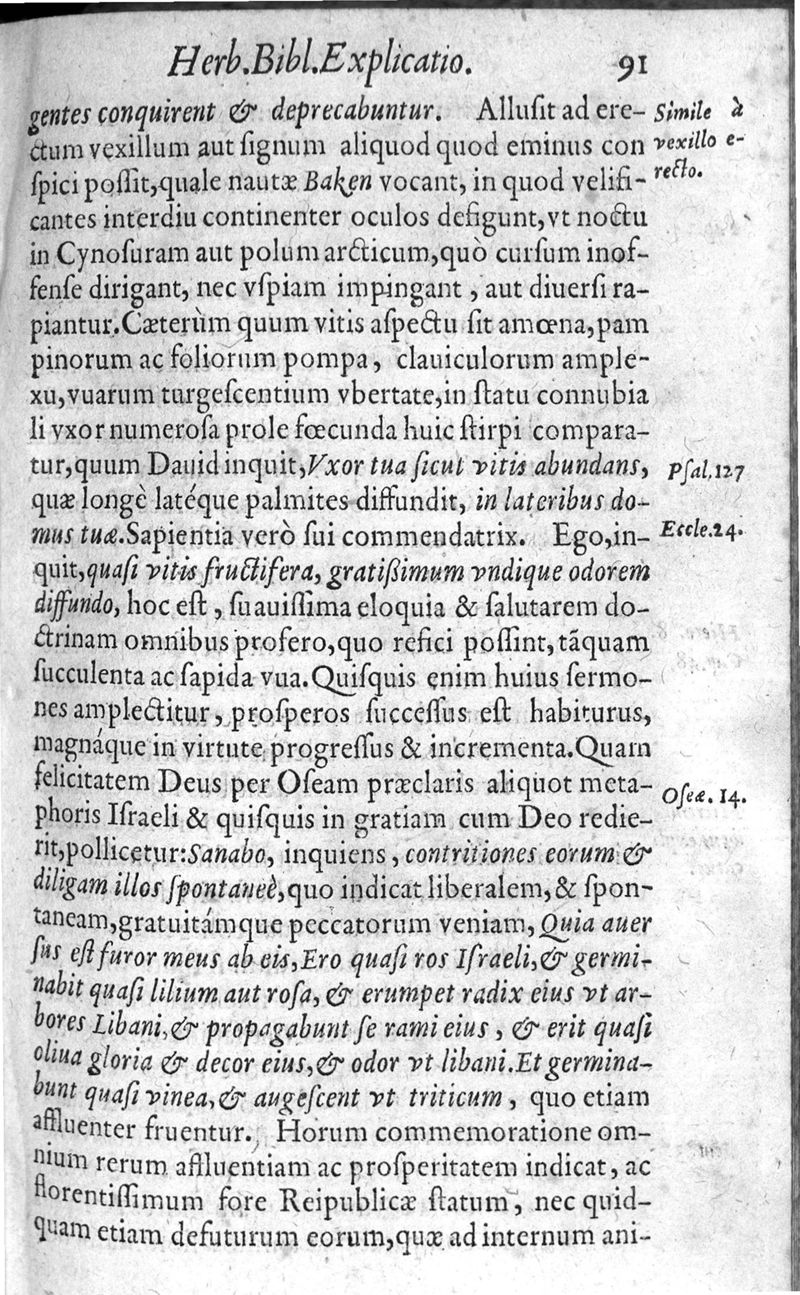 Herb.Bibl.Explicatio. 91
gentes conquirent & deprecabuntur. Alluſit ad ere-
Simile à
ctum vexillum aut ſignum aliquod quod eminus con
vexillo e-
ſpici poſſit,quale nautæ Baken vocant, in quod velifi-
recto.
cantes interdiu continenter oculos defigunt,vt noctu
in Cynoſuram aut polum arcticum,quò curſum inof-
fenſe dirigant, nec vſpiam impingant , aut diuerſi ra-
piantur.Cæterùm quum vitis aſpectu ſit amœna,pam
pinorum ac foliorum pompa, clauiculorum ample-
xu,vuarum turgeſcentium vbertate,in ſtatu connubia
li vxor numeroſa prole fœcunda huic ſtirpi compara-
tur,quum Dauid inquit,Vxor tua ſicut vitis abundans,
Pſal.127
quæ longè latéque palmites diffundit, in lateribus do-
mus tuæ.Sapientia verò ſui commendatrix. Ego,in-
Eccle.24.
quit,quaſi vitis fructifera, gratißimum vndique odorem
diffundo, hoc eſt , ſuauiſſima eloquia & ſalutarem do-
ctrinam omnibus profero,quo refici poſſint,tãquam
ſucculenta ac ſapida vua.Quiſquis enim huius ſermo-
nes amplectitur, proſperos ſucceſſus eſt habiturus,
magnáque in virtute progreſſus & incrementa.Quam
felicitatem Deus per Oſeam præclaris aliquot meta-
Oſeæ. 14.
phoris Iſraeli & quiſquis in gratiam cum Deo redie-
rit,pollicetur:Sanabo, inquiens , contritiones eorum &
diligam illos ſpontaneè,quo indicat liberalem,& ſpon-
taneam,gratuitámque peccatorum veniam, Quia auer
ſus eſt furor meus ab eis,Ero quaſi ros Iſraeli,& germi-
nabit quaſi lilium aut roſa, & erumpet radix eius vt ar-
bores Libani,& propagabunt ſe rami eius , & erit quaſi
oliua gloria & decor eius,& odor vt libani.Et germina-
bunt quaſi vinea,& augeſcent vt triticum , quo etiam
affluenter fruentur. Horum commemoratione om-
nium rerum affluentiam ac proſperitatem indicat, ac
florentiſſimum fore Reipublicæ ſtatum, nec quid-
quam etiam defuturum eorum,quæ ad internum ani-